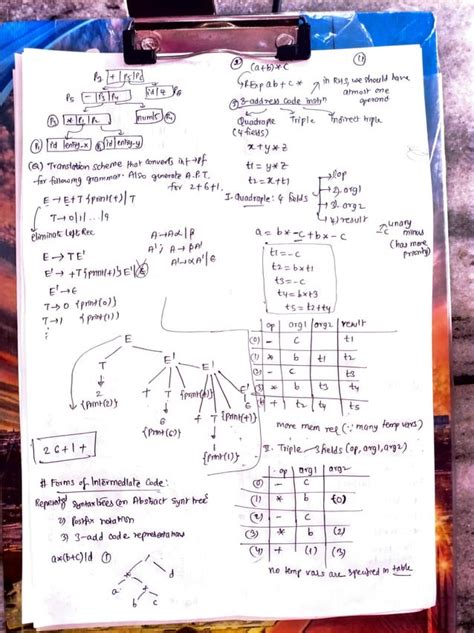 P7 + P5 P6
P5 - P3 P4
id z P6
P3 * P1 P2
num 5 P4
P1 id entry-x P2 id entry-y
(Q) Translation scheme that converts inf → pf
for following grammar. Also generate A.P.T.
for 2+6+1.
E → E+T {print(+)} | T
T → 0|1|...|9
Eliminate Left Rec
E → TE'
A → Aα|β
A: A → βA'
A' → αA'|ε
E' → +T{print(+)}E'|ε
E' → ε
T → 0 {print(0)}
T → 1 {print(1)}
E
T E'
2 {print(2)}
+ T {print(+)} E'
6 {print(6)}
+ T {print(+)} E'
1 {print(1)}
ε
26+1+
# Forms of Intermediate Code:
Syntax trees (on Abstract Synt tree)
2) Postfix notation
3) 3-add code representation
ax(b+c)/d ①
/
* d
a +
b c
② (a+b)*c
→ Exp ab+c*
①
in RHS, we should have
almost one
operand
③ 3-address Code instrn
Quadruple Triple Indirect triple
(4 fields)
x+y*z
t1 = y*z
t2 = x+t1
I. Quadruple: 4 fields
1. op
2. arg1
3. arg2
4) result
a = b*-c+b*-c
unary
minus
(has more
priority)
t1 = -c
t2 = b×t1
t3 = -c
t4 = b×t3
t5 = t2+t4
op arg1 arg2 result
(0) - c t1
(1) * b t1 t2
(2) - c t3
(3) * b t3 t4
(4) + t2 t4 t5
more mem req (∵ many temp vars)
2. Triple → 3 fields (op, arg1, arg2)
op arg1 arg2
(0) - c
(1) * b (0)
(2) - c
(3) * b (2)
(4) + (1) (3)
no temp vars are specified in table